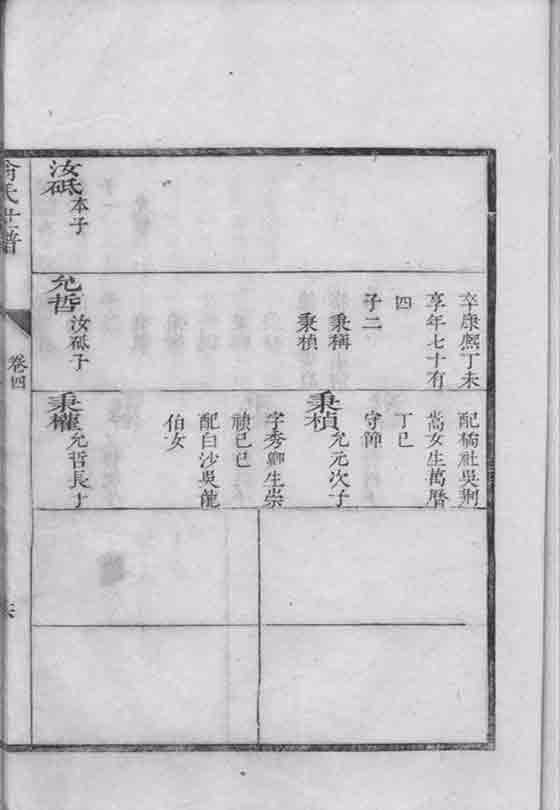 卒康熙丁未
享年七十有
四
子二
秉稱
秉楨
配楠社吳荆
嵩女生萬曆
丁巳
守倬
秉楨允元次子
字秀卿生崇
禎己巳
配白沙吳龍
伯女
汝砥本子
允哲汝砥子
秉權允哲長子
俞氏世譜
卷四